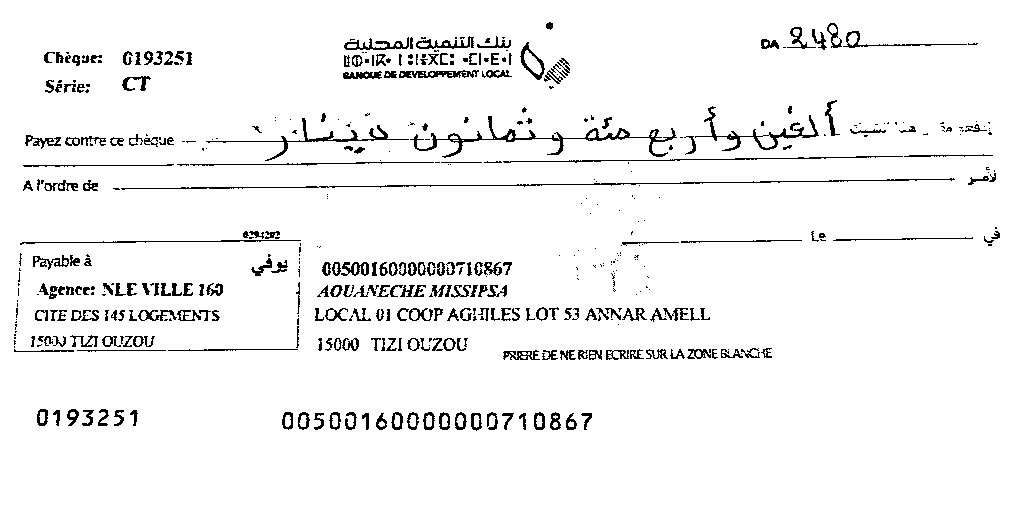 Chèque: 0193251
Série: CT
بنك التنمية المحلية
BANQUE DE DEVELOPPEMENT LOCAL
DA 2480
Payez contre ce chèque ألفين وأربع مئة وثمانون دينار
A l'ordre de لأمر
Le في
0294202
Payable à يوفي
Agence: NLE VILLE 160
CITE DES 145 LOGEMENTS
15000 TIZI OUZOU
00500160000000710867
AOUANECHE MISSIPSA
LOCAL 01 COOP AGHILES LOT 53 ANNAR AMELL
15000 TIZI OUZOU
PRIERE DE NE RIEN ECRIRE SUR LA ZONE BLANCHE
0193251 00500160000000710867